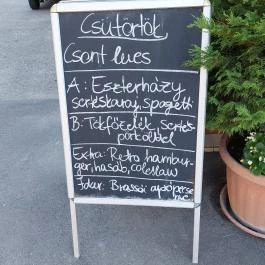 Csütörtök
Csont leves
A: Eszterházy
sertéskaraj, spagetti
B: Tökfőzelék, sertés
pörkölttel
Extra: Retro hambur-
ger, hasáb, coleslaw
Jolly: Brassói aprópecse
nye